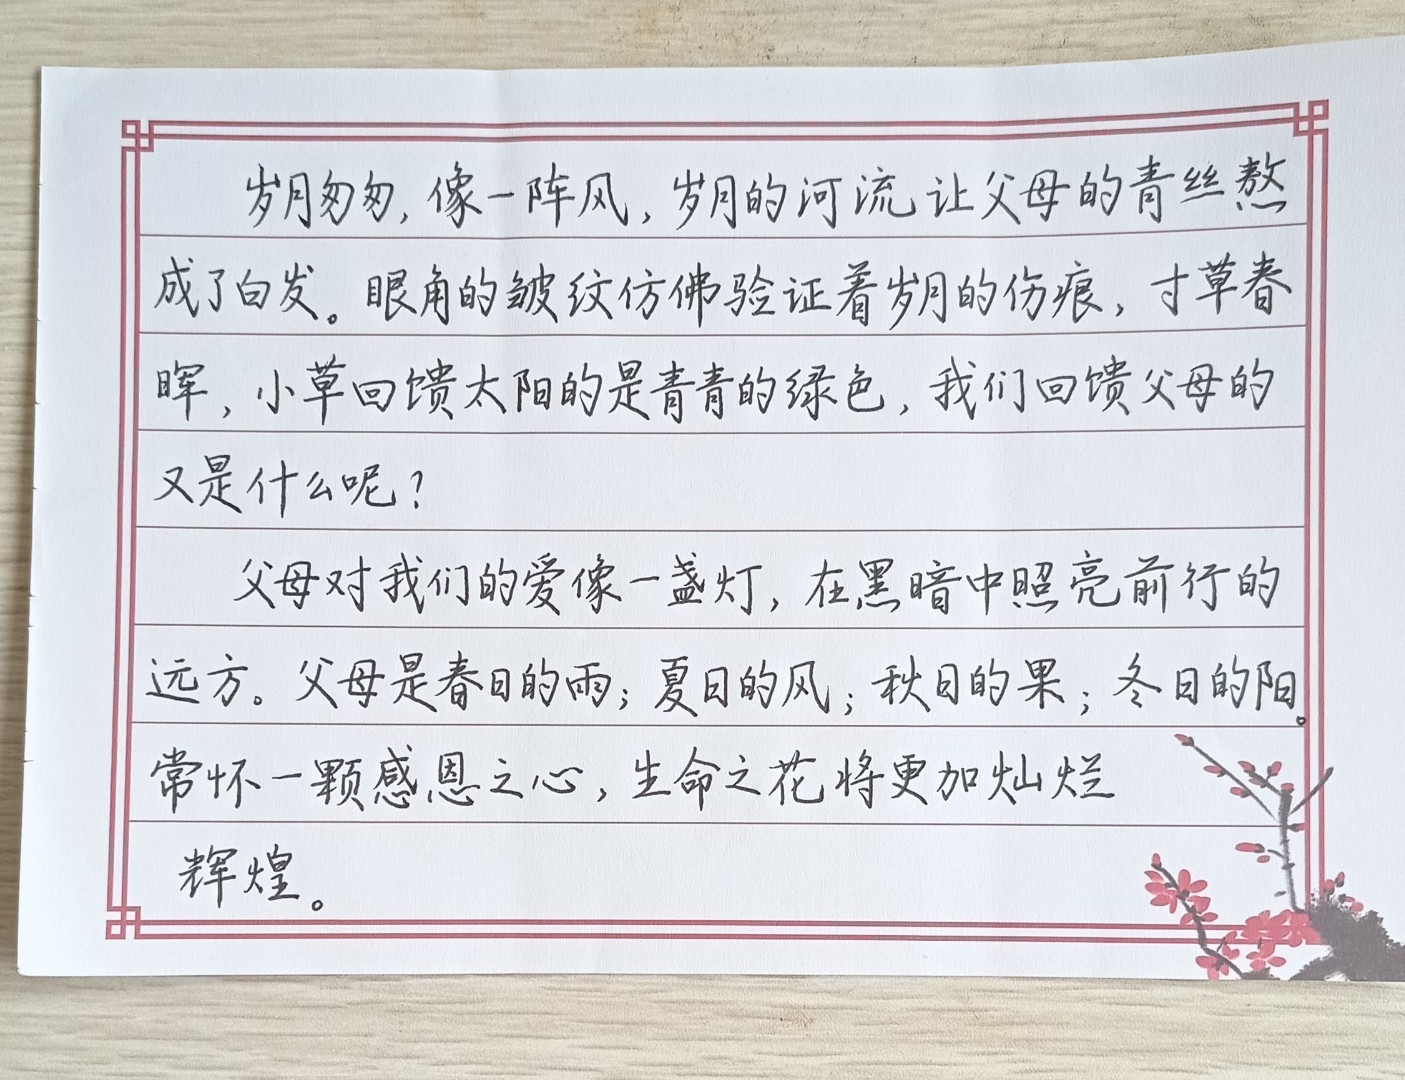 岁月匆匆，像一阵风，岁月的河流让父母的青丝熬
成了白发。眼角的皱纹仿佛验证着岁月的伤痕，寸草春
晖，小草回馈太阳的是青青的绿色，我们回馈父母的
又是什么呢？
父母对我们的爱像一盏灯，在黑暗中照亮前行的
远方。父母是春日的雨；夏日的风；秋日的果；冬日的阳。
常怀一颗感恩之心，生命之花将更加灿烂
辉煌。